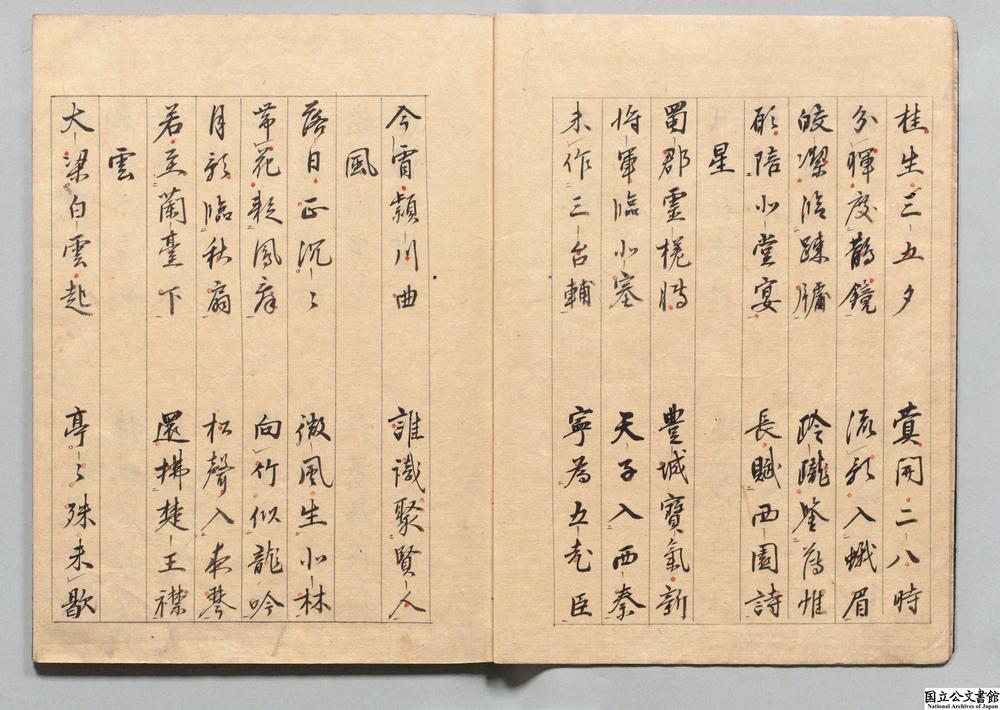 桂生三五夕　蓂開二八時
分暉度鵲鏡　流影入蛾眉
皎潔臨踈牖　玲瓏鑒薄帷
願陪北堂宴　長賦西園詩
星
蜀郡靈槎轉　豊城寶氣新
將軍臨北塞　天子入西秦
未作三台輔　寧為五老臣
今宵潁川曲　誰識聚賢人
風
落日正沉々　微風生北林
帯花疑鳳舞　向竹似龍吟
月影臨秋扇　松聲入夜琴
若至蘭臺下　還拂楚王襟
雲
大梁白雲起　亭々殊未歇
国立公文書館
National Archives of Japan